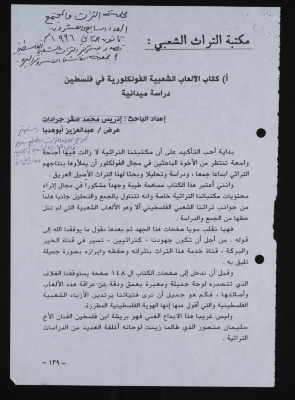 مجلة التراث والمجتمع
مكتبة التراث الشعبي :
أ) كتاب الألعاب الشعبية الفولكلورية في فلسطين
دراسة ميدانية
إعداد الباحث : إدريس محمد صقر جرادات
عرض / عبدالعزيز أبوهدبا
بداية أحب التأكيد على أن مكتبتنا التراثية لا زالت فيها أجنحة
واسعة تنتظر من الأخوة الباحثين في مجال الفولكلور أن يملأوها بنتاجهم
التراثي ابداعا جمعا ، ودراسة وتحليلا وبحثا لهذا التراث الأصيل العريق .
وانني أعتبر هذا الكتاب مساهمة طيبة وجهدا مشكورا في مجال إثراء
محتويات مكتباتنا التراثية خاصة وانه تتناول بالجمع والتحليل جانبا هاما
من جوانب تراثنا الشعبي الفلسطيني ألا وهو الألعاب الشعبية التي لم تنل
حظها من الجمع والدراسة .
فهيا نقلب سويا صفحات هذا الجهد ثم بعدها نقول ما يوفقنا الله إلى
قوله . من أجل أن تكون جهودنا - كتراثيين - تصير في قناة الخير
والبركة ، قناة خدمة هذا التراث باثرائه وحفظه وابرازه بصورة جميلة
تليق به .
وقبل أن ندخل إلى صفحات الكتاب ال ١٤٨ صفحة يستوقفنا الغلاف
الذي تتصدره لوحة جميلة ومعبرة بعمق ودقة عن عراقة هذه الألعاب
وأصالتها ، فكم هو جميل أن نرى فتياتنا يرتدين الأزياء الشعبية
الفلسطينية والتي أقول عنها إنها الهوية الفلسطينية المطرزة.
وليس غريبا هذا الابداع الفني فهو بريشة ابن فلسطين الفنان الأخ
سليمان منصور الذي طالما زينت لوحاته أغلفة العديد من الدراسات
التراثية .
- ١٣٩ -